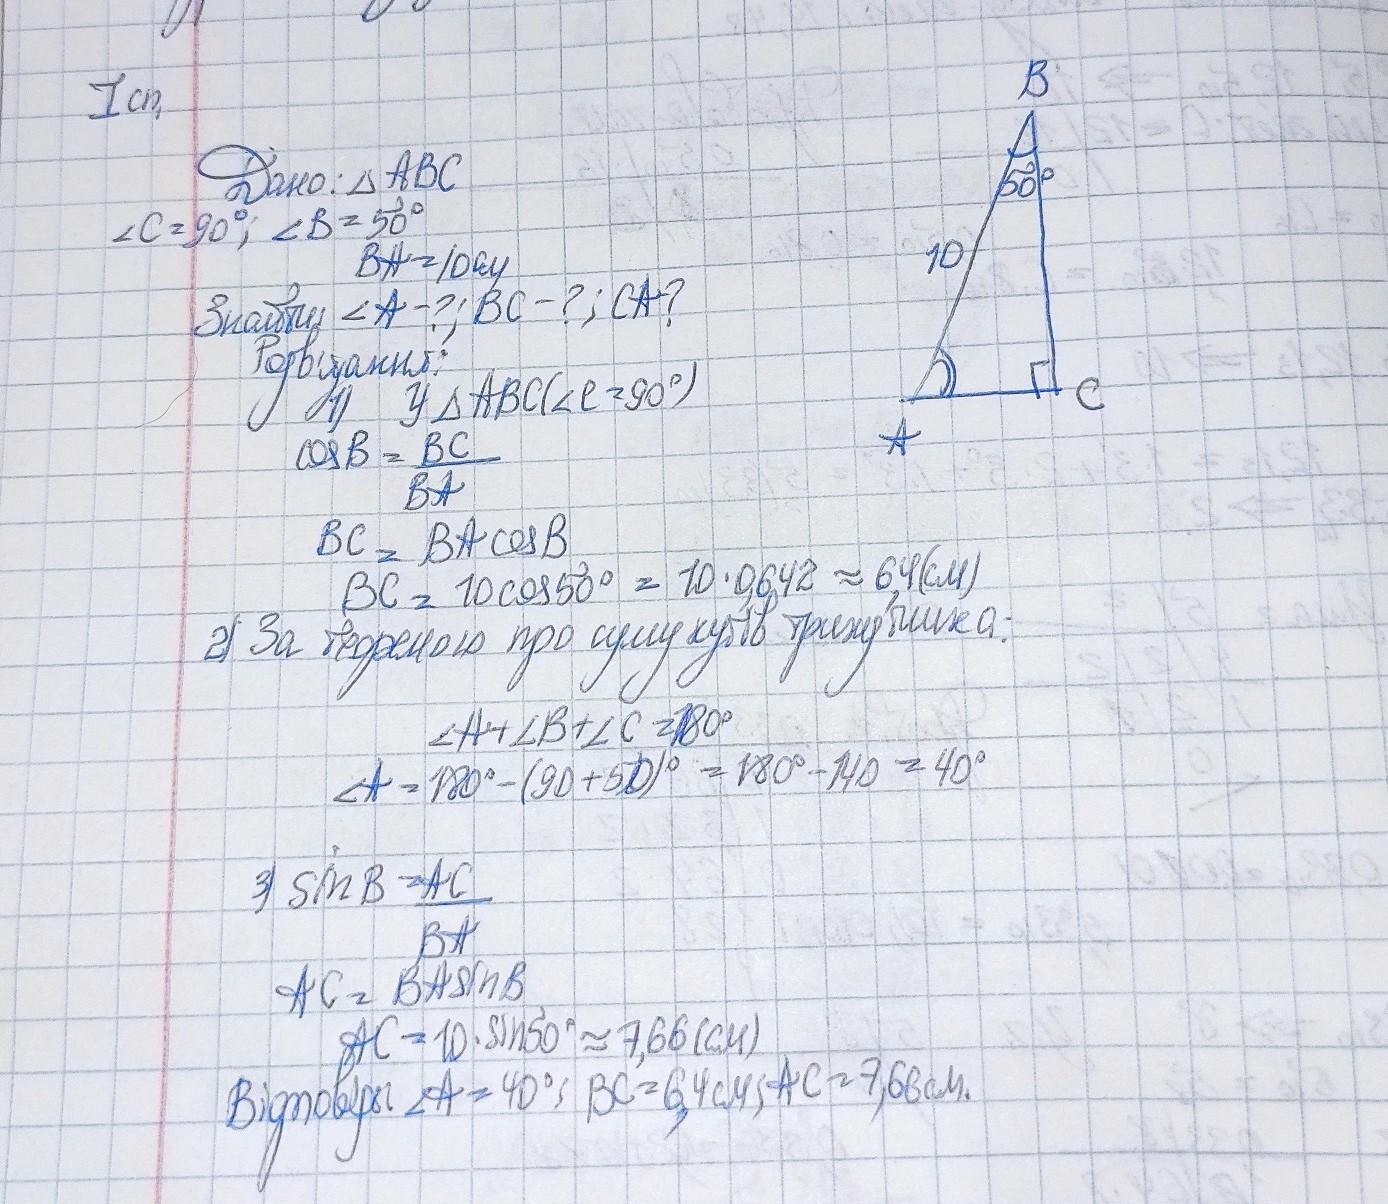 I сп.
Дано: △ ABC
∠C = 90°; ∠B = 50°
BA = 10см
Знайти: ∠A - ?; BC - ?; CA ?
Розв'язання:
1) У △ ABC (∠C = 90°)
cosB = BC
BA
BC = BA cosB
BC = 10 cos50° = 10 · 0,642 ≈ 6,4 (см)
2) За теоремою про суму кутів трикутника:
∠A + ∠B + ∠C = 180°
∠A = 180° - (90 + 50)° = 180° - 140 = 40°
3) sin B = AC
BA
AC = BA sin B
AC = 10 · sin50° ≈ 7,66 (см)
Відповідь: ∠A = 40°; BC = 6,4 см; AC = 7,66 см.
B
50°
10
A
C